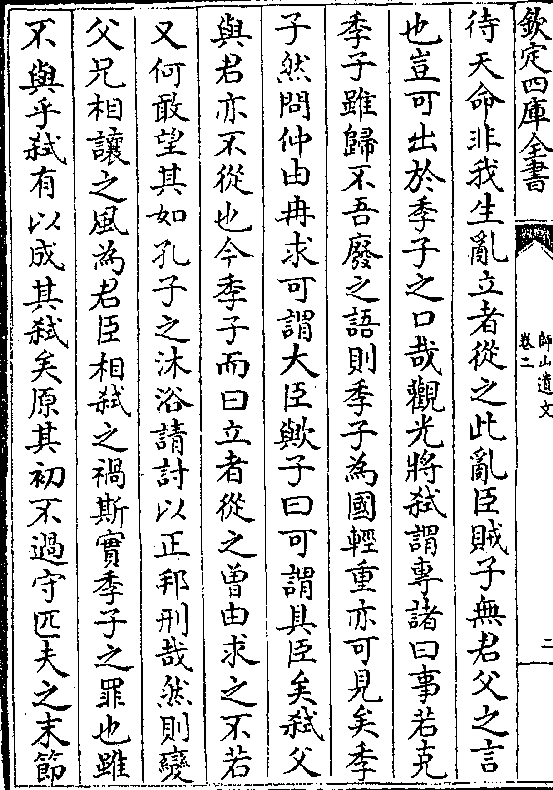 欽定四庫全書
師山遺文
卷二
二
待天命非我生亂立者從之此亂臣賊子無君父之言
也豈可出於季子之口哉觀光將弑謂專諸曰事若克
季子雖歸不吾廢之語則季子為國輕重亦可見矣季
子然問仲由冉求可謂大臣歟子曰可謂具臣矣弑父
與君亦不從也今季子而曰立者從之曽由求之不若
又何敢望其如孔子之沐浴請討以正邦刑哉然則變
父兄相讓之風為君臣相弑之禍斯實季子之罪也雖
不與乎弑有以成其弑矣原其初不過守匹夫之末節